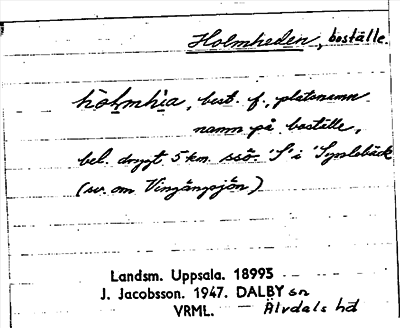 Holmheden, boställe.
hòḷmhèa, best. f., platsnamn
namn på boställe,
bel. drygt 5 km. ssö. 'S' i 'Sysslebäck
(sv. om Vingängsjön)
Landsm. Uppsala. 18993
J. Jacobsson. 1947. DALBY sn
VRML. Älvdals hd